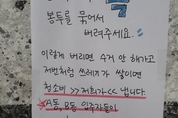 봉투를 묶어서
버려주세요.
이렇게 버리면 수거 안 해가고
저번처럼 쓰레기가 쌓이면
청소비 >> 저희가 << 냅니다.
A동, B동 입주자들이